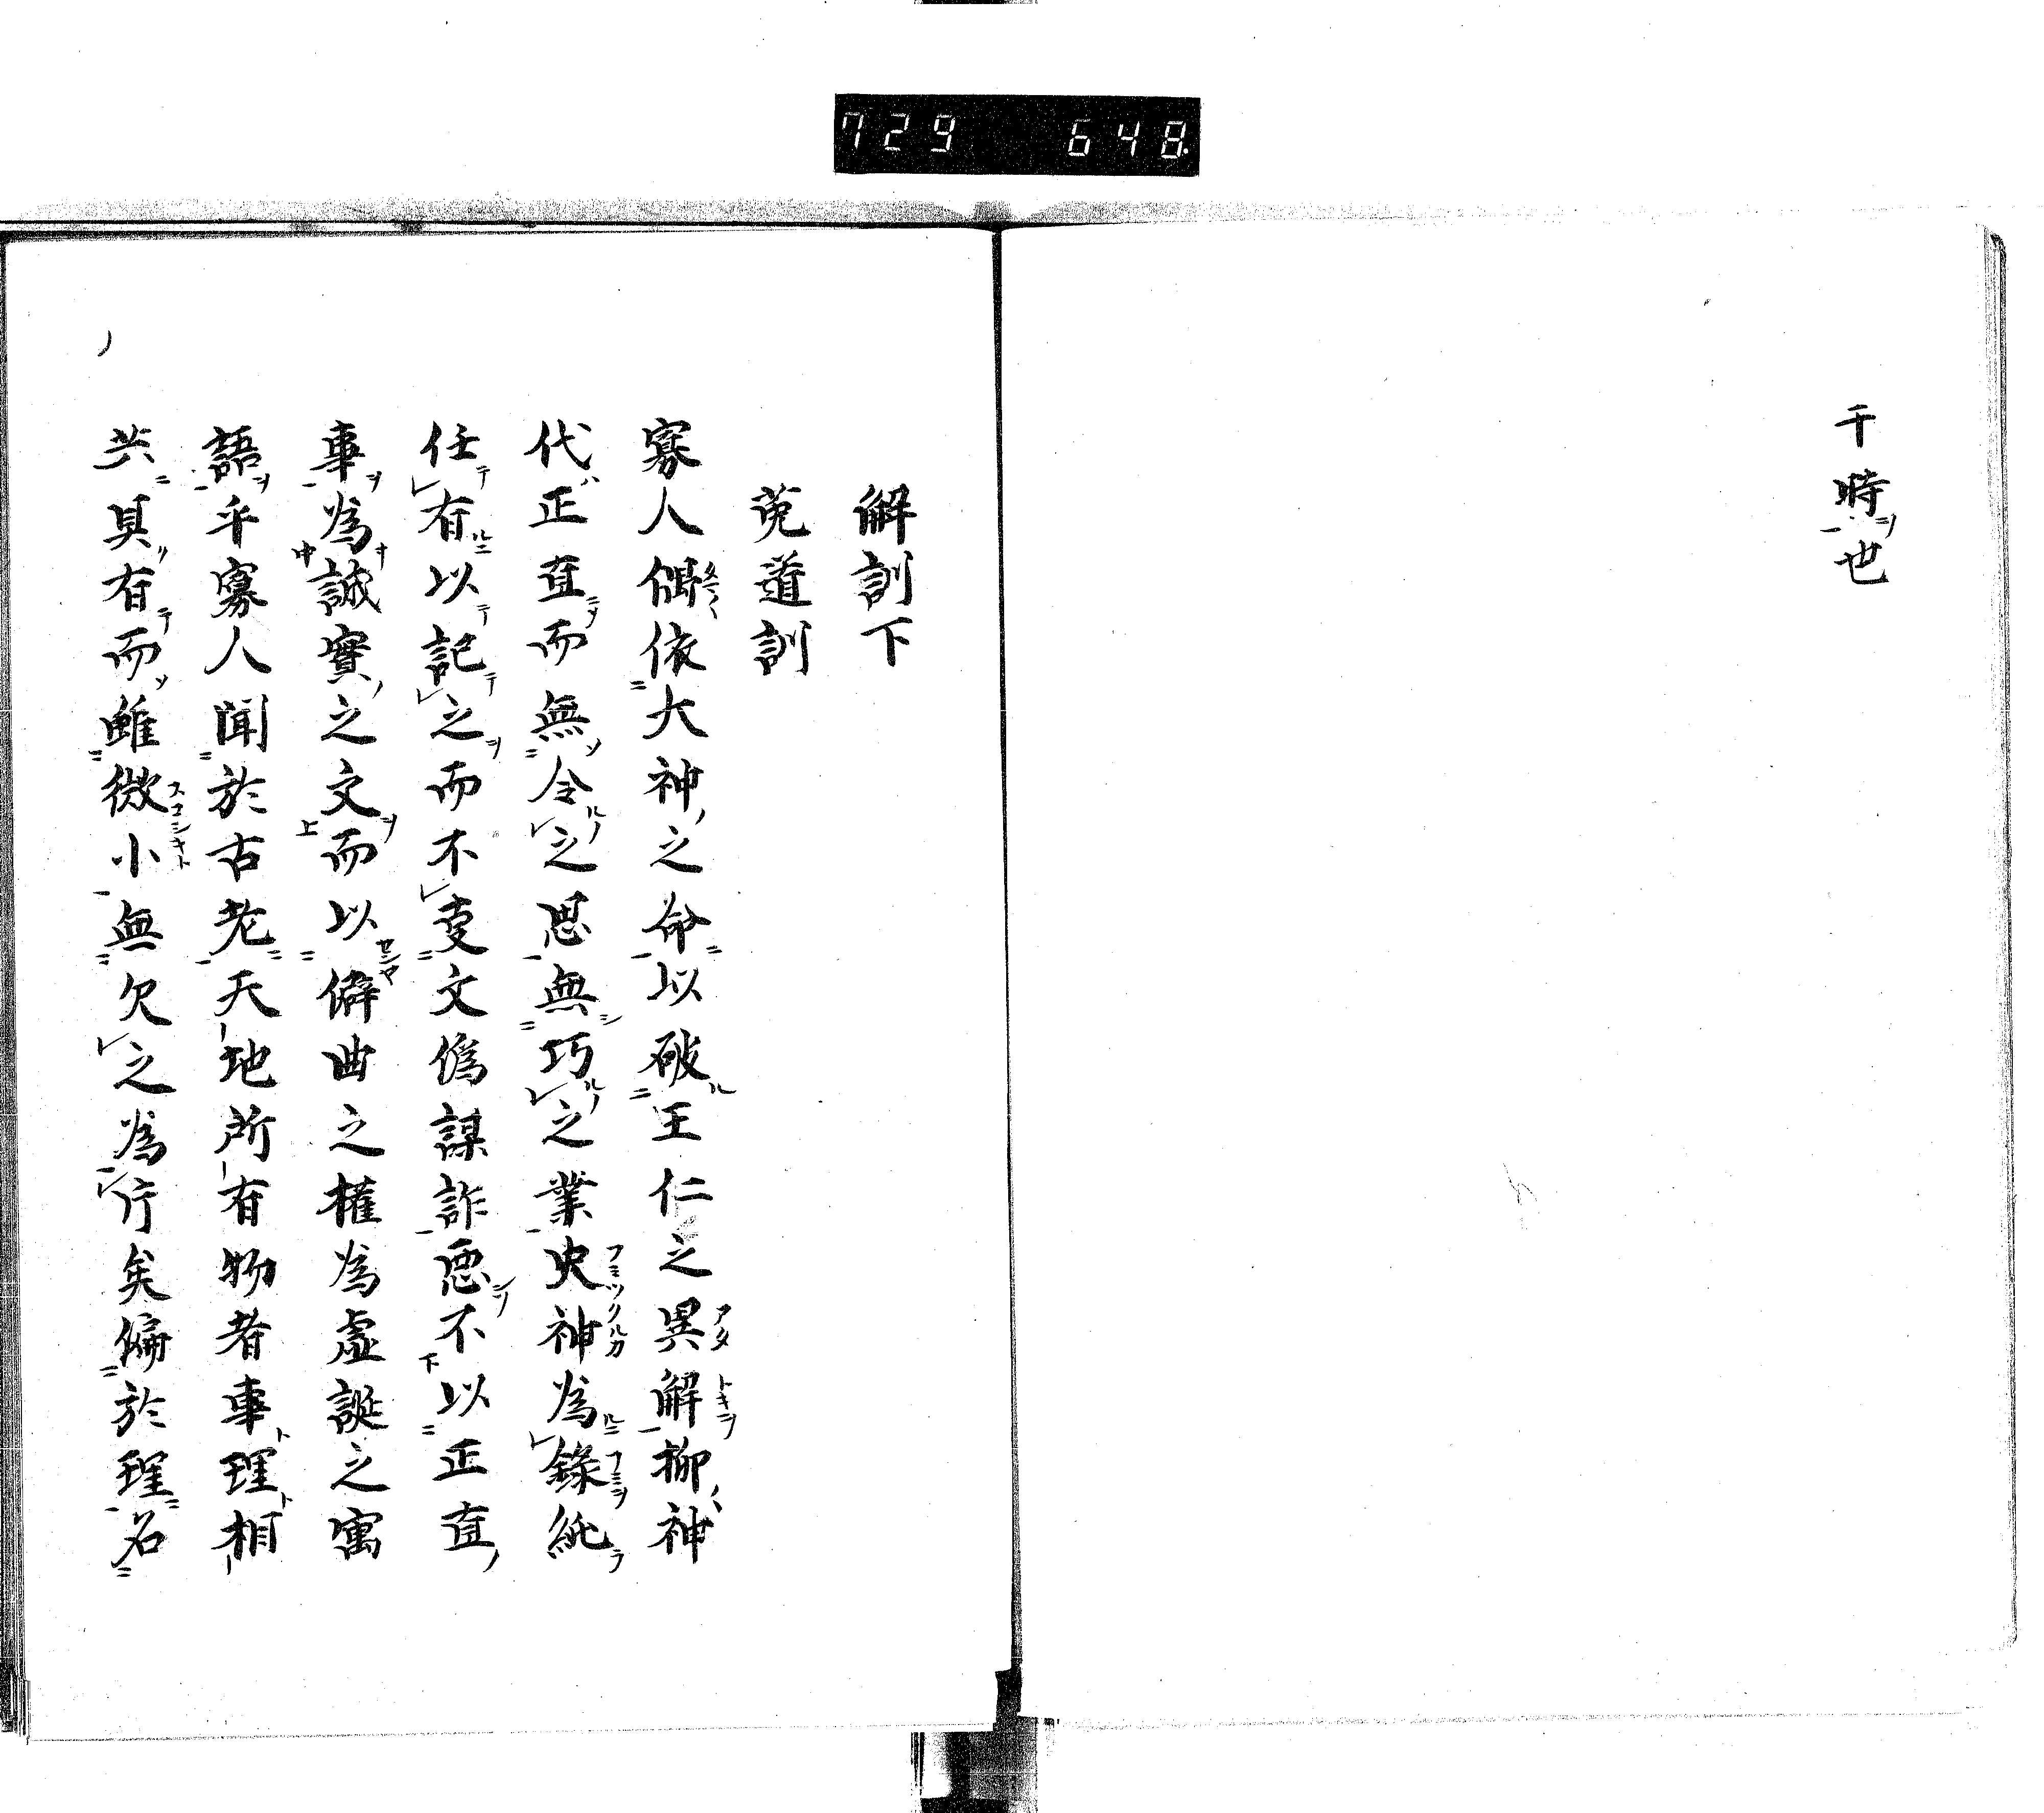 729 648
干時也
解訓下
菟道訓
寡人偶依大神之命以破王仁之異解抑神
代正直而無令之思無巧之業史神為錄純
任有以記之而不耍文偽謀詐悪不以正直
事為誠實之文而以僻曲之權為虛誕之寓
語乎寡人聞於古老天地所有物者事理相
共具有而雖微小無欠之為行矣偏於理名